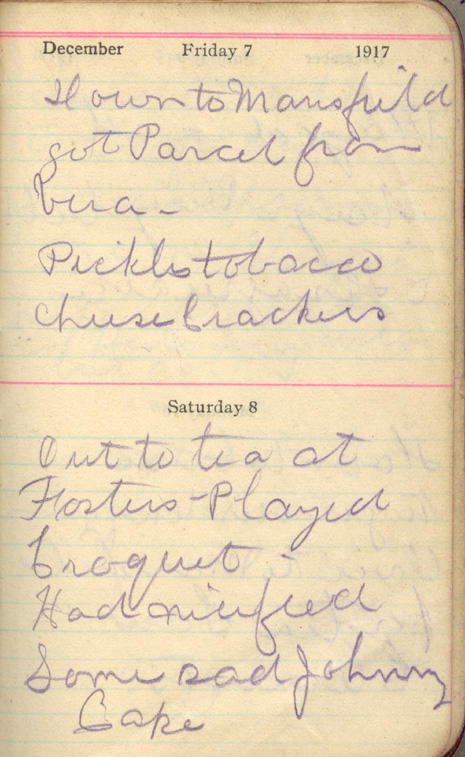 December Friday 7 1917
Down to Mansfield
got Parcel from
Vera -
Pickles tobacco
cheese Crackers
Saturday 8
Out to tea at
Fosters - Played
Croquet -
Had
Some sad Johnny
Cake